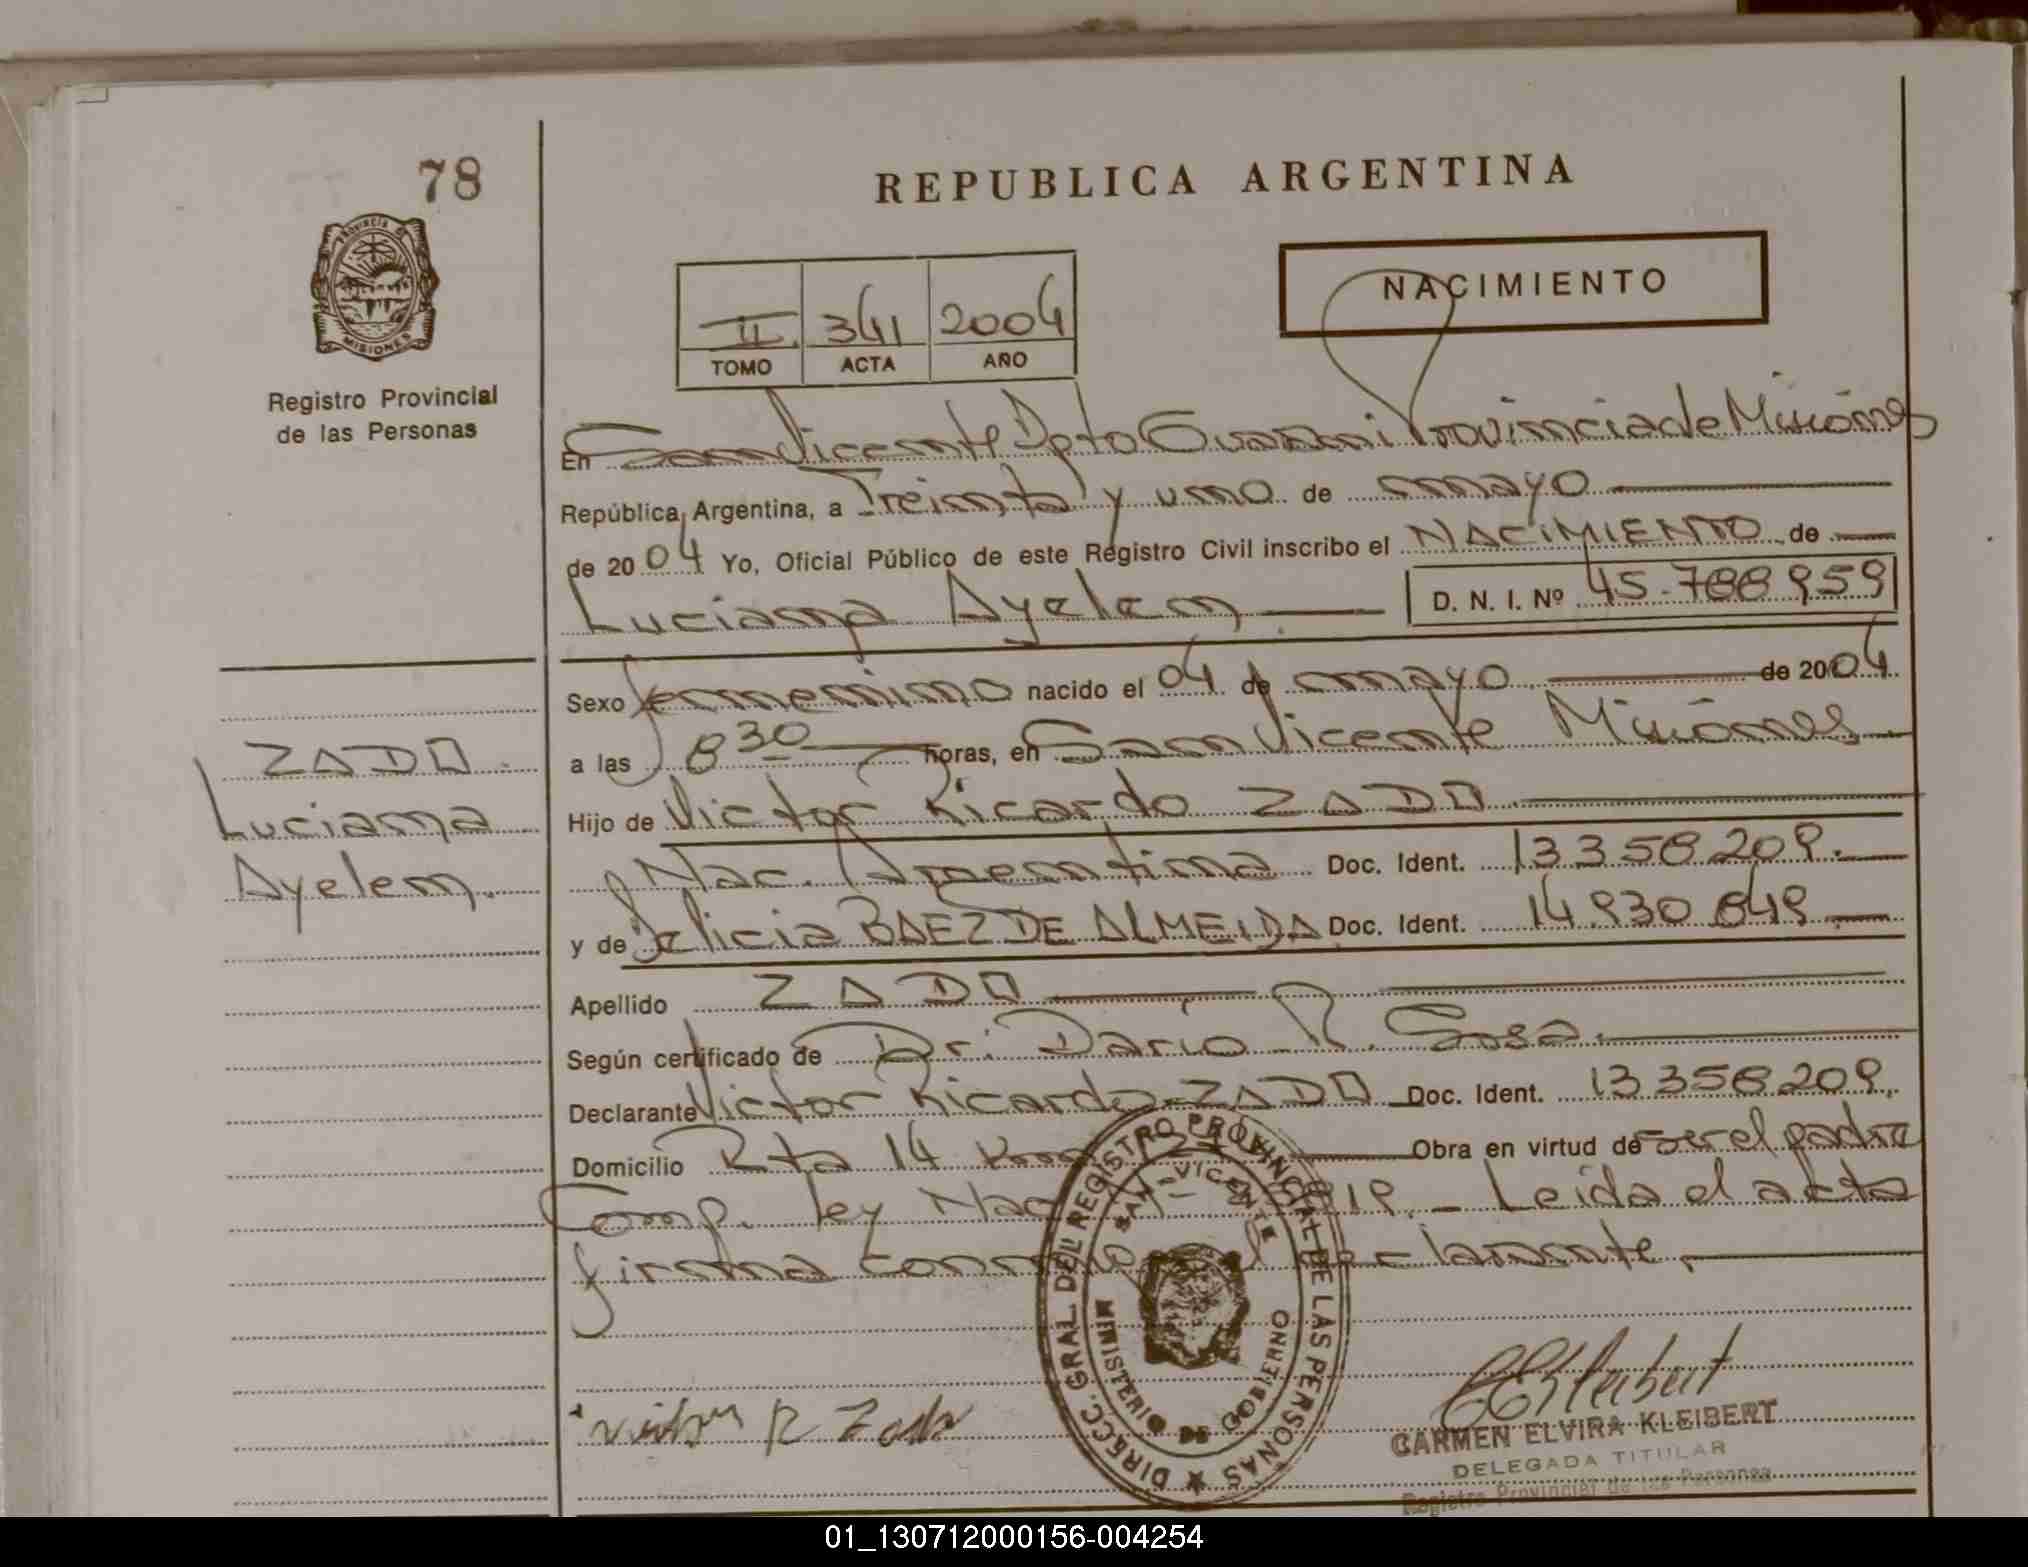 78
REPUBLICA ARGENTINA
Provincia de
MISIONES
Registro Provincial
de las Personas
II 341 2004
TOMO ACTA AÑO
NACIMIENTO
En San Vicente Dpto Guarani Provincia de Misiones
República Argentina, a Treinta y uno de mayo
de 2004 Yo, Oficial Público de este Registro Civil inscribo el NACIMIENTO de
Luciana Ayelen D. N. I. Nº 45.788959
Sexo femenino nacido el 04 de mayo de 2004
ZADO
Luciana
Ayelen.
a las 8 30 horas, en San Vicente Misiones
Hijo de Victor Ricardo ZADO
Nac. Argentina Doc. Ident. 13358209.
y de Felicia BAEZ DE ALMEIDA Doc. Ident. 14.930849
Apellido ZADO
Según certificado de Dr. Dario R. Sosa.
Declarante Victor Ricardo ZADO Doc. Ident. 13358209.
Domicilio Rta 14 Obra en virtud de ser el padre
Comp. ley Leida el acta
firma el declarante.
DIRECC. GRAL. DEL REGISTRO PROVINCIAL DE LAS PERSONAS
SAN VICENTE
MINISTERIO DE GOBIERNO
CARMEN ELVIRA KLEIBERT
DELEGADA TITULAR
Registro Provincial de las Personas
01_130712000156-004254